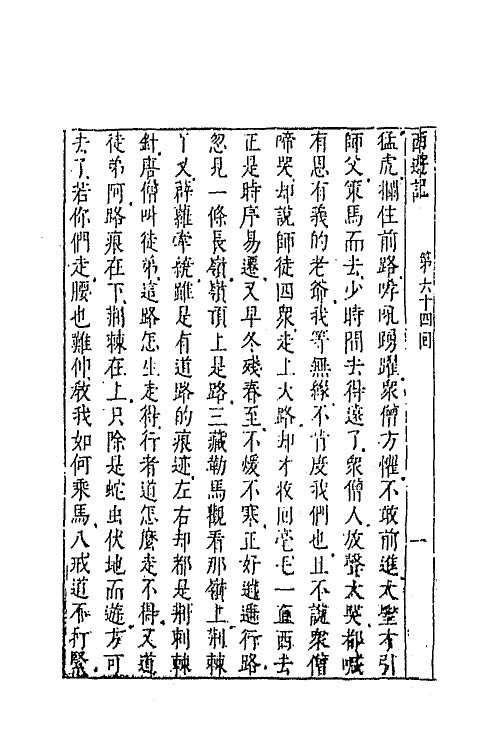 西遊記 第六十四回 一
猛虎攔住前路哮吼踴躍衆僧方懼不敢前進大聖才引
師父策馬而去少時間去得遠了衆僧人放聲大哭都喊
有恩有義的老爺我等無緣不肯度我們也且不說衆僧
啼哭却說師徒四衆走上大路却才收回毫毛一直西去
正是時序易遷又早冬殘春至不煖不寒正好逍遙行路
忽見一條長嶺嶺頂上是路三藏勒馬觀看那嶺上荆棘
丫叉薜蘿牽繞雖是有道路的痕迹左右却都是荆刺棘
針唐僧叫徒弟這路怎生走得行者道怎麽走不得又道
徒弟阿路痕在下荆棘在上只除是蛇虫伏地而遊方可
去了若你們走腰也難伸教我如何乘馬八戒道不打緊